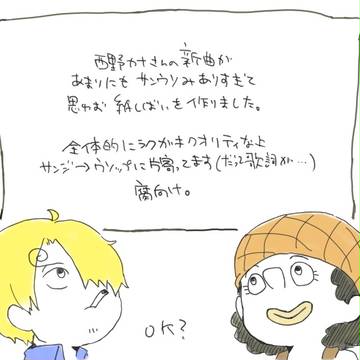 西野カナさんの新曲が
あまりにもサンウソみありすぎて
思わず紙しばいを作りました。
全体的にラクガキクオリティな上
サンジ→ウソップに片寄ってます(だって歌詞が…)
腐向け。
OK?